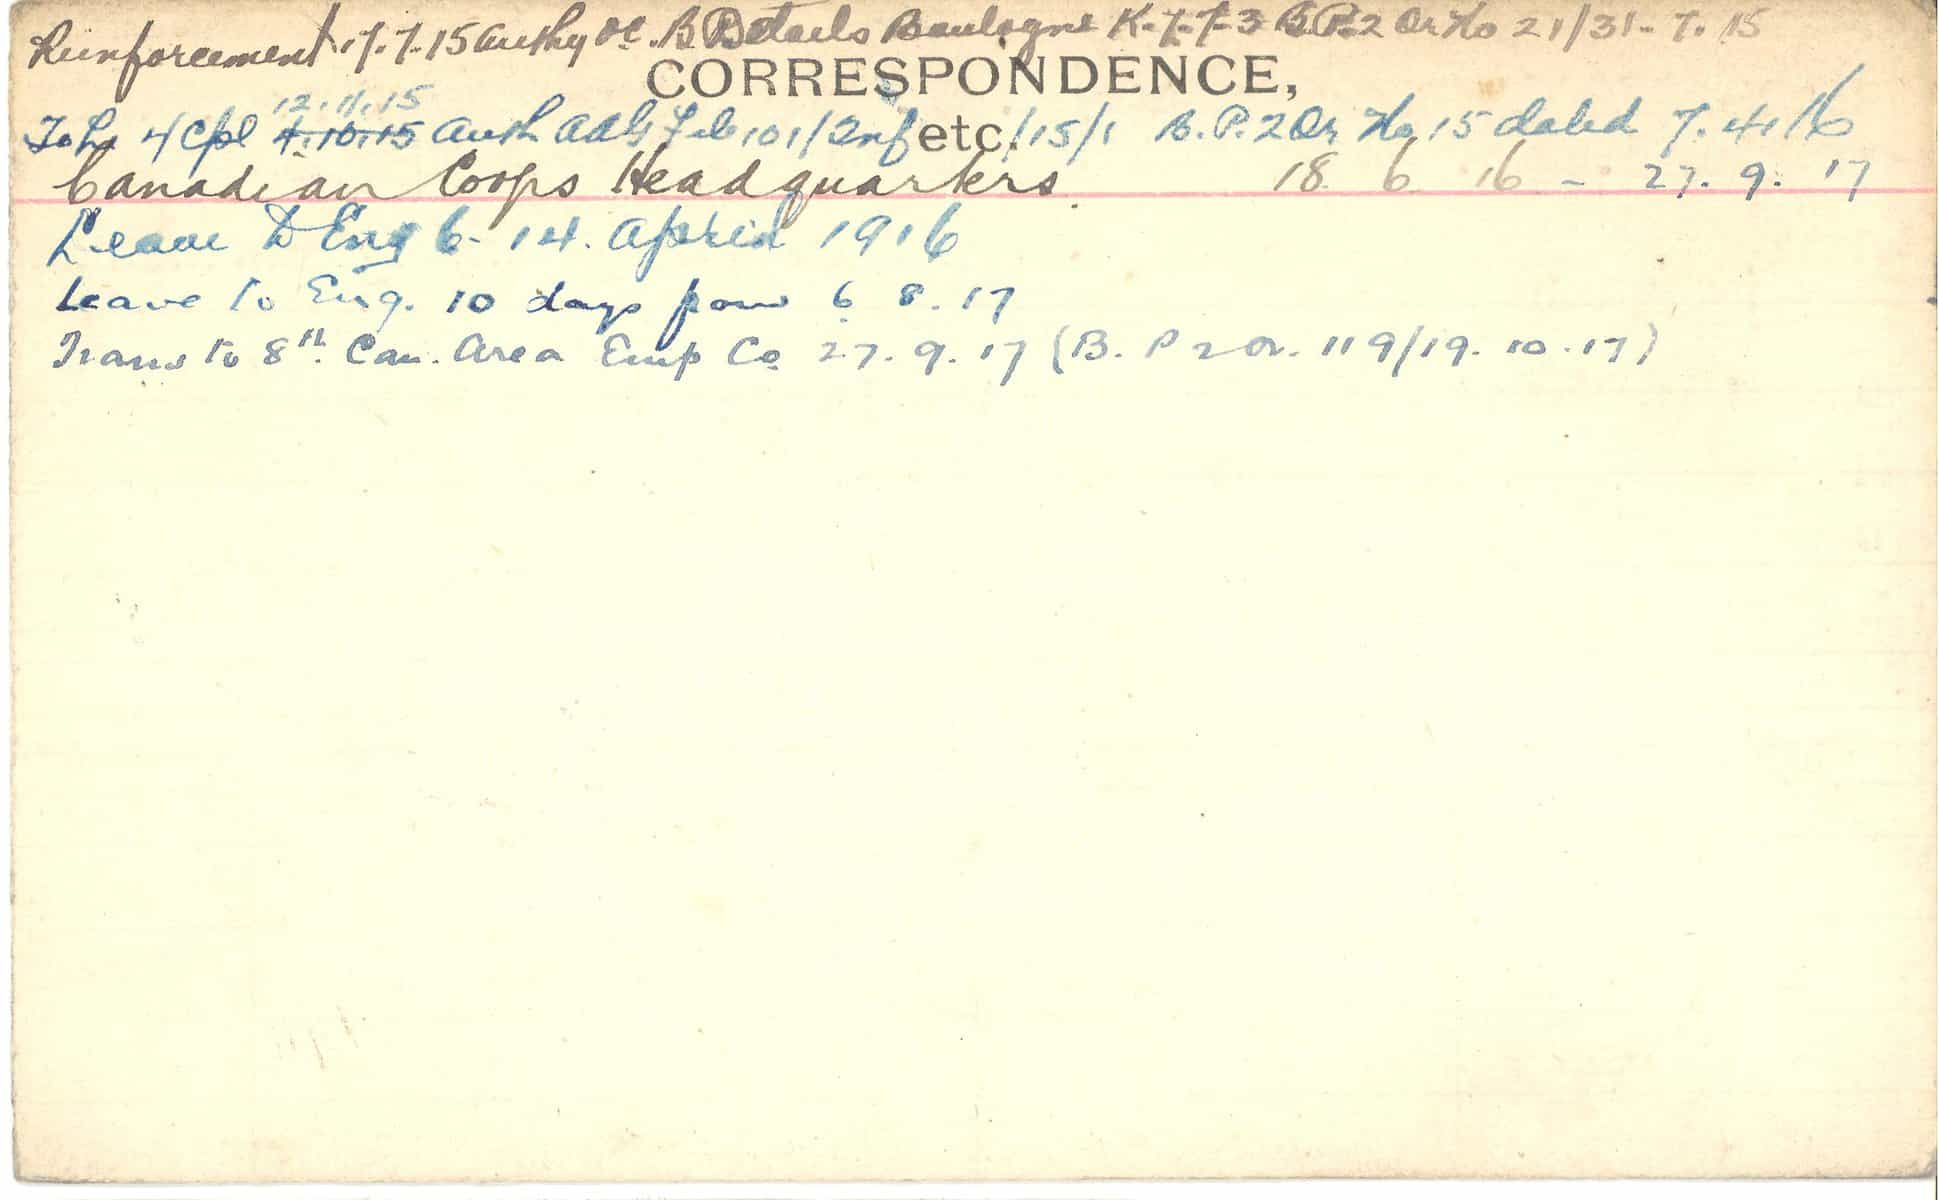 Reinforcement 17.7.15 Authy OC. B Details Boulogne K.7.7-3 B.P.2 Or No 21/31-7.15
CORRESPONDENCE,
12.11.15
To L/Cpl 4.10.15 Auth AAG 101/Inf /15/1 B.P.2 Or No 15 dated 7.4.16
etc.
Canadian Corps Headquarters 18 6 16 - 27.9.17
Leave to Eng 6-14. April 1916
Leave to Eng. 10 days from 6 8.17
Trans to 8th Can. Area Emp Co 27.9.17 (B.P 2 Or. 119/19.10.17)